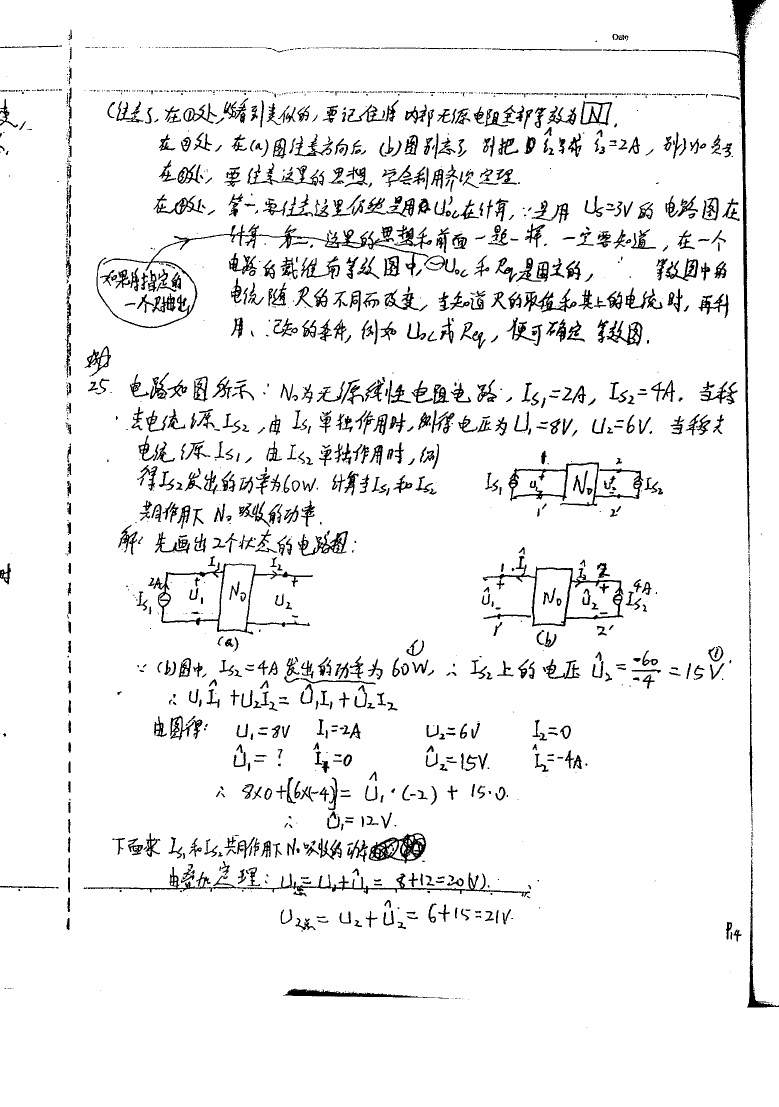 Date
(注意), 在①处, 当看到类似的, 要记住将内部无源电阻全部等效为N.
在②处, 在(a)图注意方向后, (b)图别忘了, 别把 成 Î₂=2A, 别少加负号
在③处, 要注意这里的思想, 学会利用齐次定理.
在④处, 第一, 要注意这里仍然是用Uoc在计算, ∵是用 Us=3V 的电路图在
计算. 第二, 这里的思想和前面一题一样. 一定要知道, 在一个
电路的戴维南等效图中, Uoc 和 Req是固定的, 等效图中的
如果将指定的
一个R抽出
电流随 R的不同而改变, 当知道R的取值和其上的电流时, 再利
用、已知的条件, 例如 Uoc或Req, 便可确定 等效图.
例
25. 电路如图所示: N₀为无源线性电阻电路, Is₁=2A, Is₂=4A. 当移
去电流源Is₂, 由 Is₁单独作用时, 测得电压为U₁=8V, U₂=6V. 当移去
电流源Is₁, 由Is₂单独作用时, 测
得Is₂发出的功率为60W. 计算当Is₁和Is₂
共同作用下 N₀吸收的功率.
1 2
Is₁ + u₁ - N₀ + u₂ - Is₂
1' 2'
解: 先画出2个状态的电路图:
I₁ I₂
2A Is₁ + U₁ - N₀ + U₂ -
(a)
1 Î₁ Î₂ 2
+ Û₁ - N₀ + Û₂ - 4A Is₂
1' (b) 2'
∵ (b)图中, Is₂=4A 发出的功率为 60W, ∴ Is₂上的电压 Û₂ = -60/-4 = 15V. ①
∴ U₁Î₁ + U₂Î₂ = Û₁I₁ + Û₂I₂
由图得: U₁=8V I₁=-2A U₂=6V I₂=0
Û₁=? Î₁=0 Û₂=15V. Î₂=-4A.
∴ 8×0+[6×(-4)] = Û₁·(-2) + 15·0.
∴ Û₁=12V.
下面求 Is₁和Is₂共同作用下N₀吸收的功率
由叠加定理: U₁总 = U₁+Û₁ = 8+12=20(V).
U₂总 = U₂+Û₂ = 6+15=21V.
P14